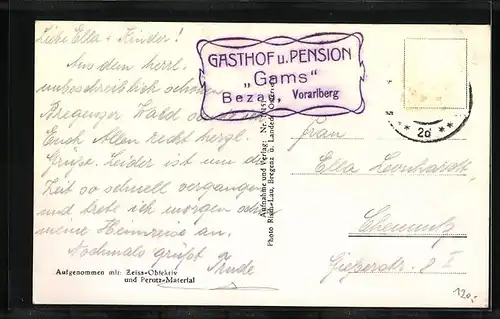 Liebe Ella + Kinder!
Aus dem herrl.
unbeschreiblich schönen
Bregenzer Wald
Euch Allen recht herzl.
Grüße. Leider ist um die
Zeit so schnell vergangen
und trete ich morgen schon
meine Heimreise an.
Nochmals grüßt
Trude
Aufgenommen mit: Zeiss-Objektiv
und Perutz-Material
GASTHOF u. PENSION
„Gams“
Bezau, Vorarlberg
Aufnahme und Verlag:
Photo Risch-Lau, Bregenz u. Landeck
20
Frau
Ella Leonhardt
Chemnitz
Gießerstr. 8 I
120,-